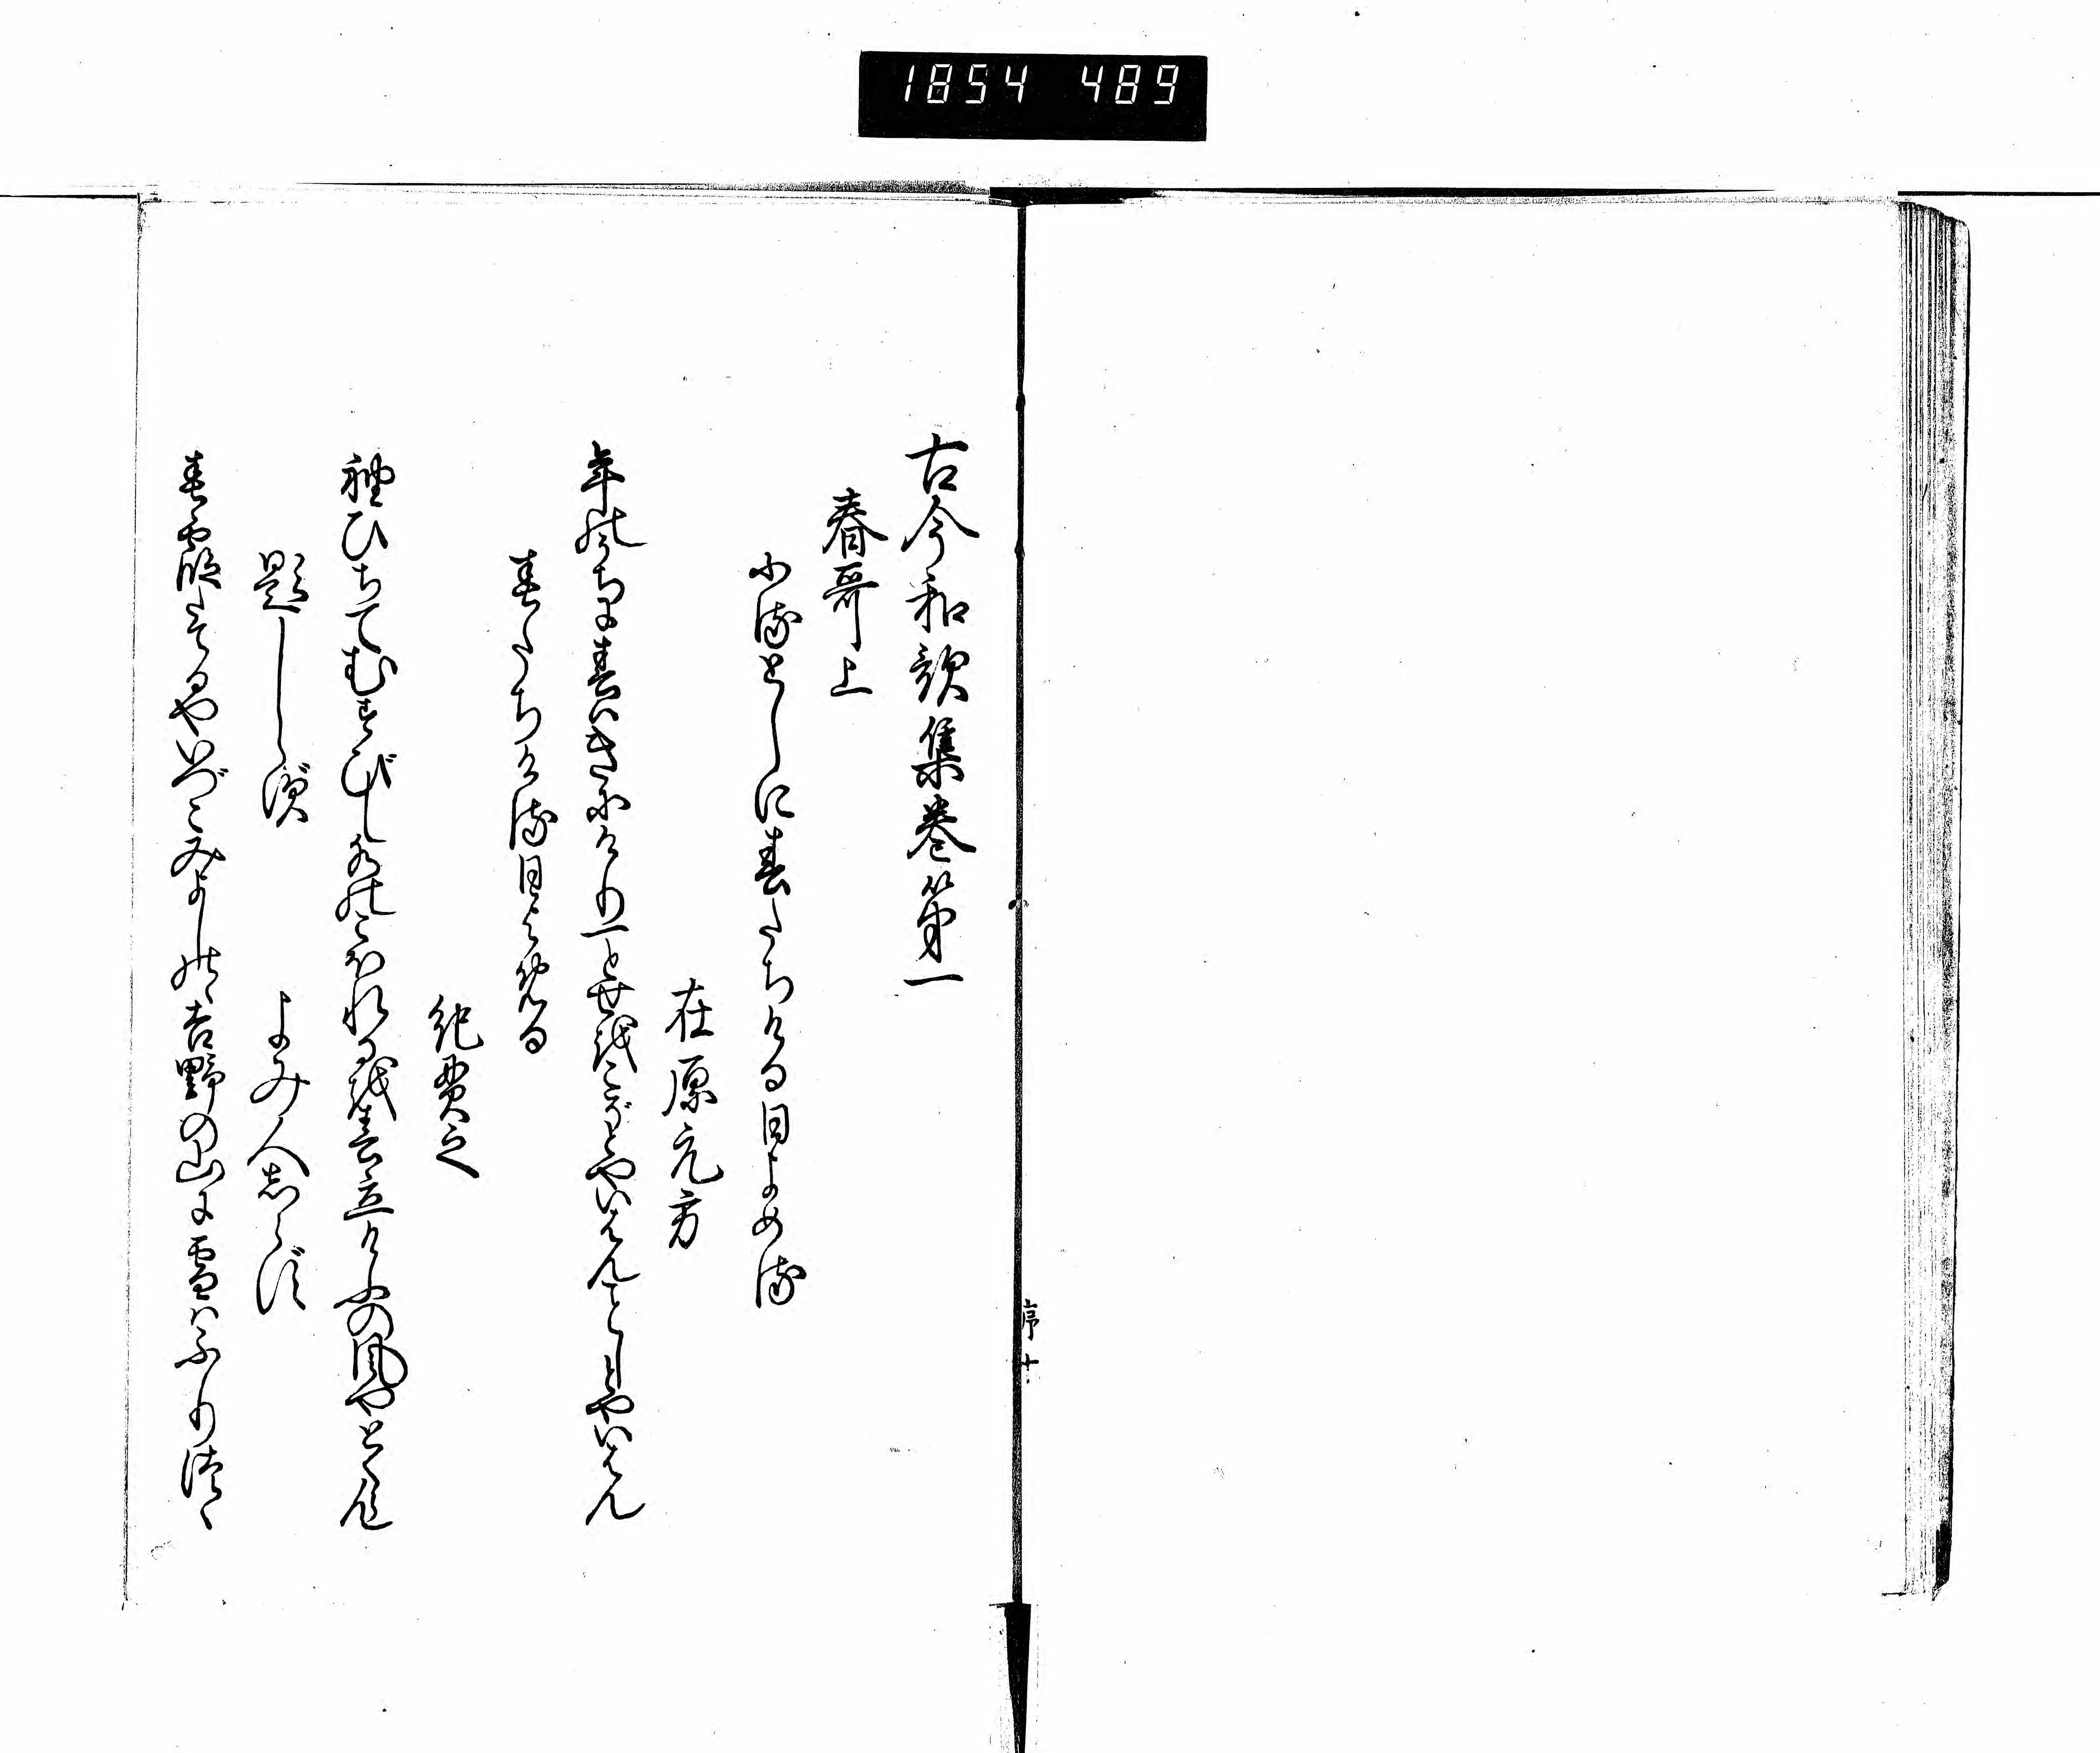 1854 489
古今和歌集巻第一
春哥上
ふるとしに春たちける日よめる
在原元方
年のうちに春はきにけり一とせをこぞとやいはんことしとやいはん
春たちける日よめる
紀貫之
袖ひちてむすびし水のこほれるを春立けふの風やとくらん
題しらず
よみ人しらず
春霞たてるやいづこみよしのゝ吉野の山に雪はふりつゝ
序十